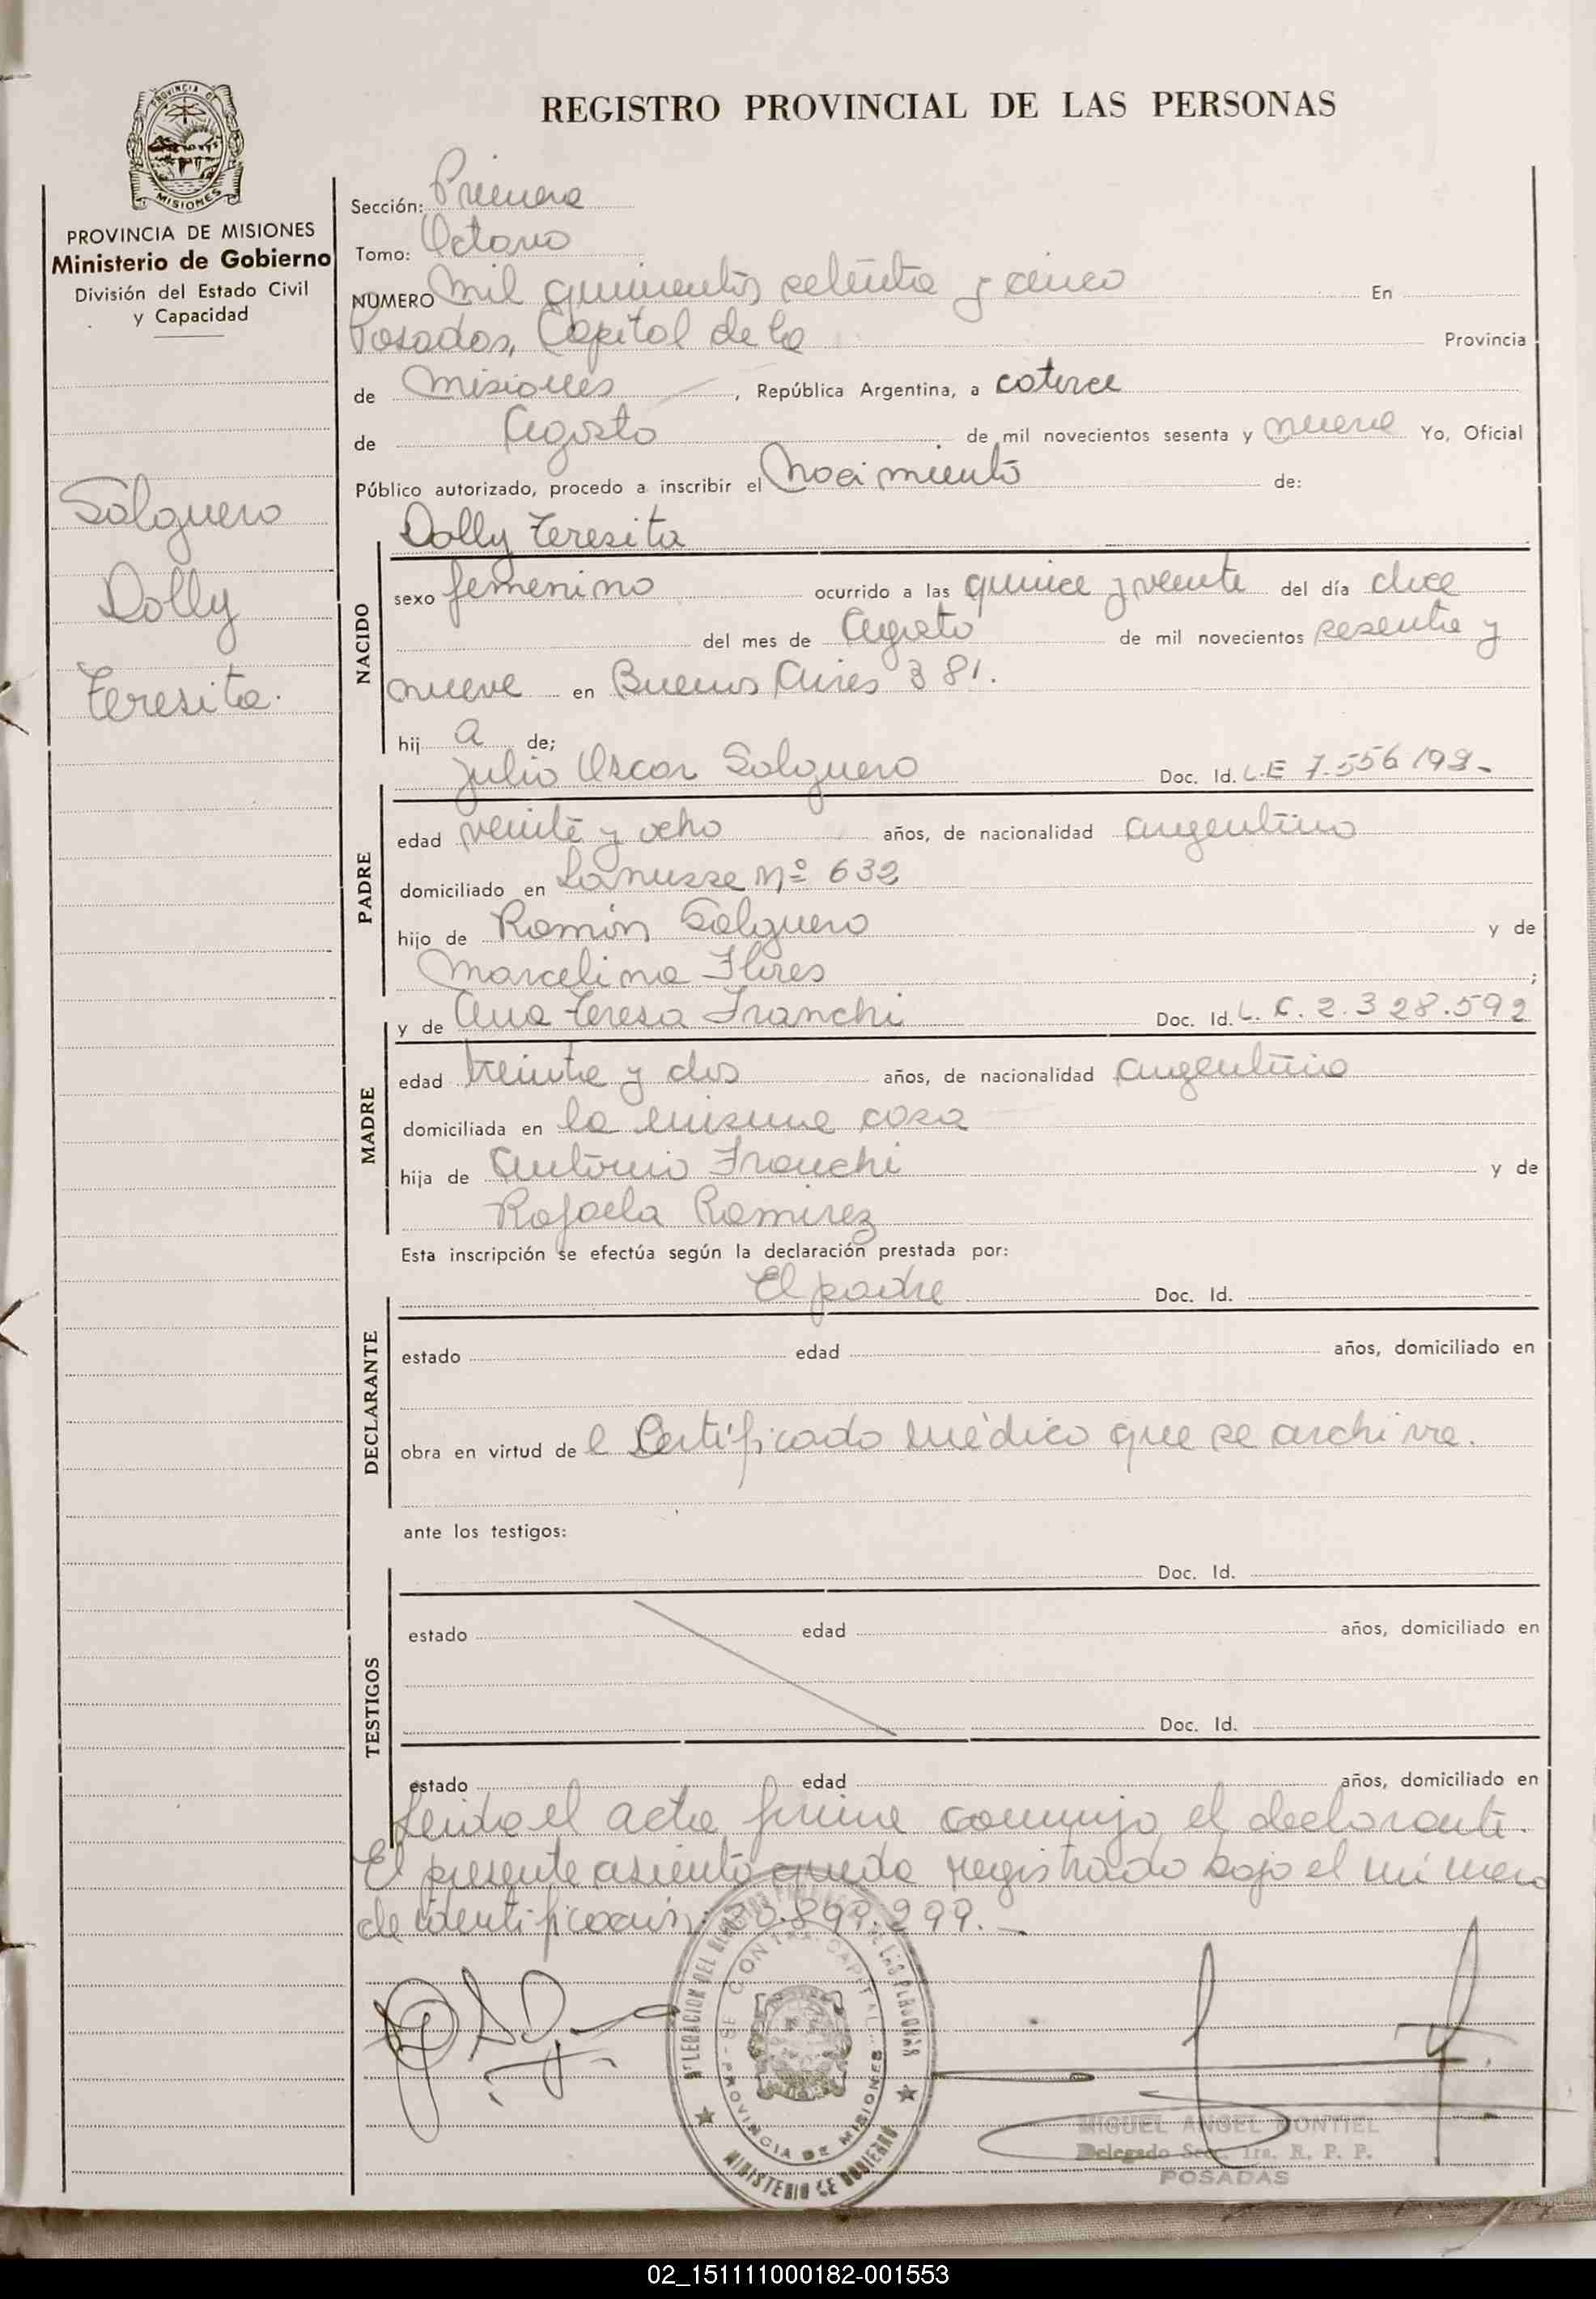 PROVINCIA DE MISIONES
PROVINCIA DE MISIONES
Ministerio de Gobierno
División del Estado Civil
y Capacidad
Salguero
Dolly
Teresita.
REGISTRO PROVINCIAL DE LAS PERSONAS
Sección: Primera
Tomo: Octavo
NUMERO Mil quinientos setenta y cinco En
Posadas, Capital de la Provincia
de Misiones, República Argentina, a catorce
de Agosto de mil novecientos sesenta y nueve Yo, Oficial
Público autorizado, procedo a inscribir el Nacimiento de:
Dolly Teresita
NACIDO
sexo femenino ocurrido a las quince y veinte del día doce
del mes de Agosto de mil novecientos sesenta y
nueve en Buenos Aires 381.
hij a de;
Julio Oscar Salguero Doc. Id. L.E 7.556.198.-
PADRE
edad veinte y ocho años, de nacionalidad argentino
domiciliado en Lanusse Nº 632
hijo de Ramón Salguero y de
Marcelina Flores ;
y de Ana Teresa Franchi Doc. Id. L.C. 2.328.592
MADRE
edad treinta y dos años, de nacionalidad argentina
domiciliada en la misma casa
hija de Antonio Franchi y de
Rafaela Ramirez
Esta inscripción se efectúa según la declaración prestada por:
El padre Doc. Id.
DECLARANTE
estado edad años, domiciliado en
obra en virtud de l Certificado médico que se archiva.
ante los testigos:
Doc. Id.
TESTIGOS
estado edad años, domiciliado en
Doc. Id.
estado edad años, domiciliado en
Leida el acta firma conmigo el declarante.
El presente asiento queda registrado bajo el número
de identificación: 20.899.299.-
DELEGACION DEL REGISTRO PROVINCIAL DE LAS PERSONAS
CAPITAL
PROVINCIA DE MISIONES
MINISTERIO DE GOBIERNO
MIGUEL ANGEL MONTIEL
Delegado Sec. 1ra. R. P. P.
POSADAS
02_151111000182-001553